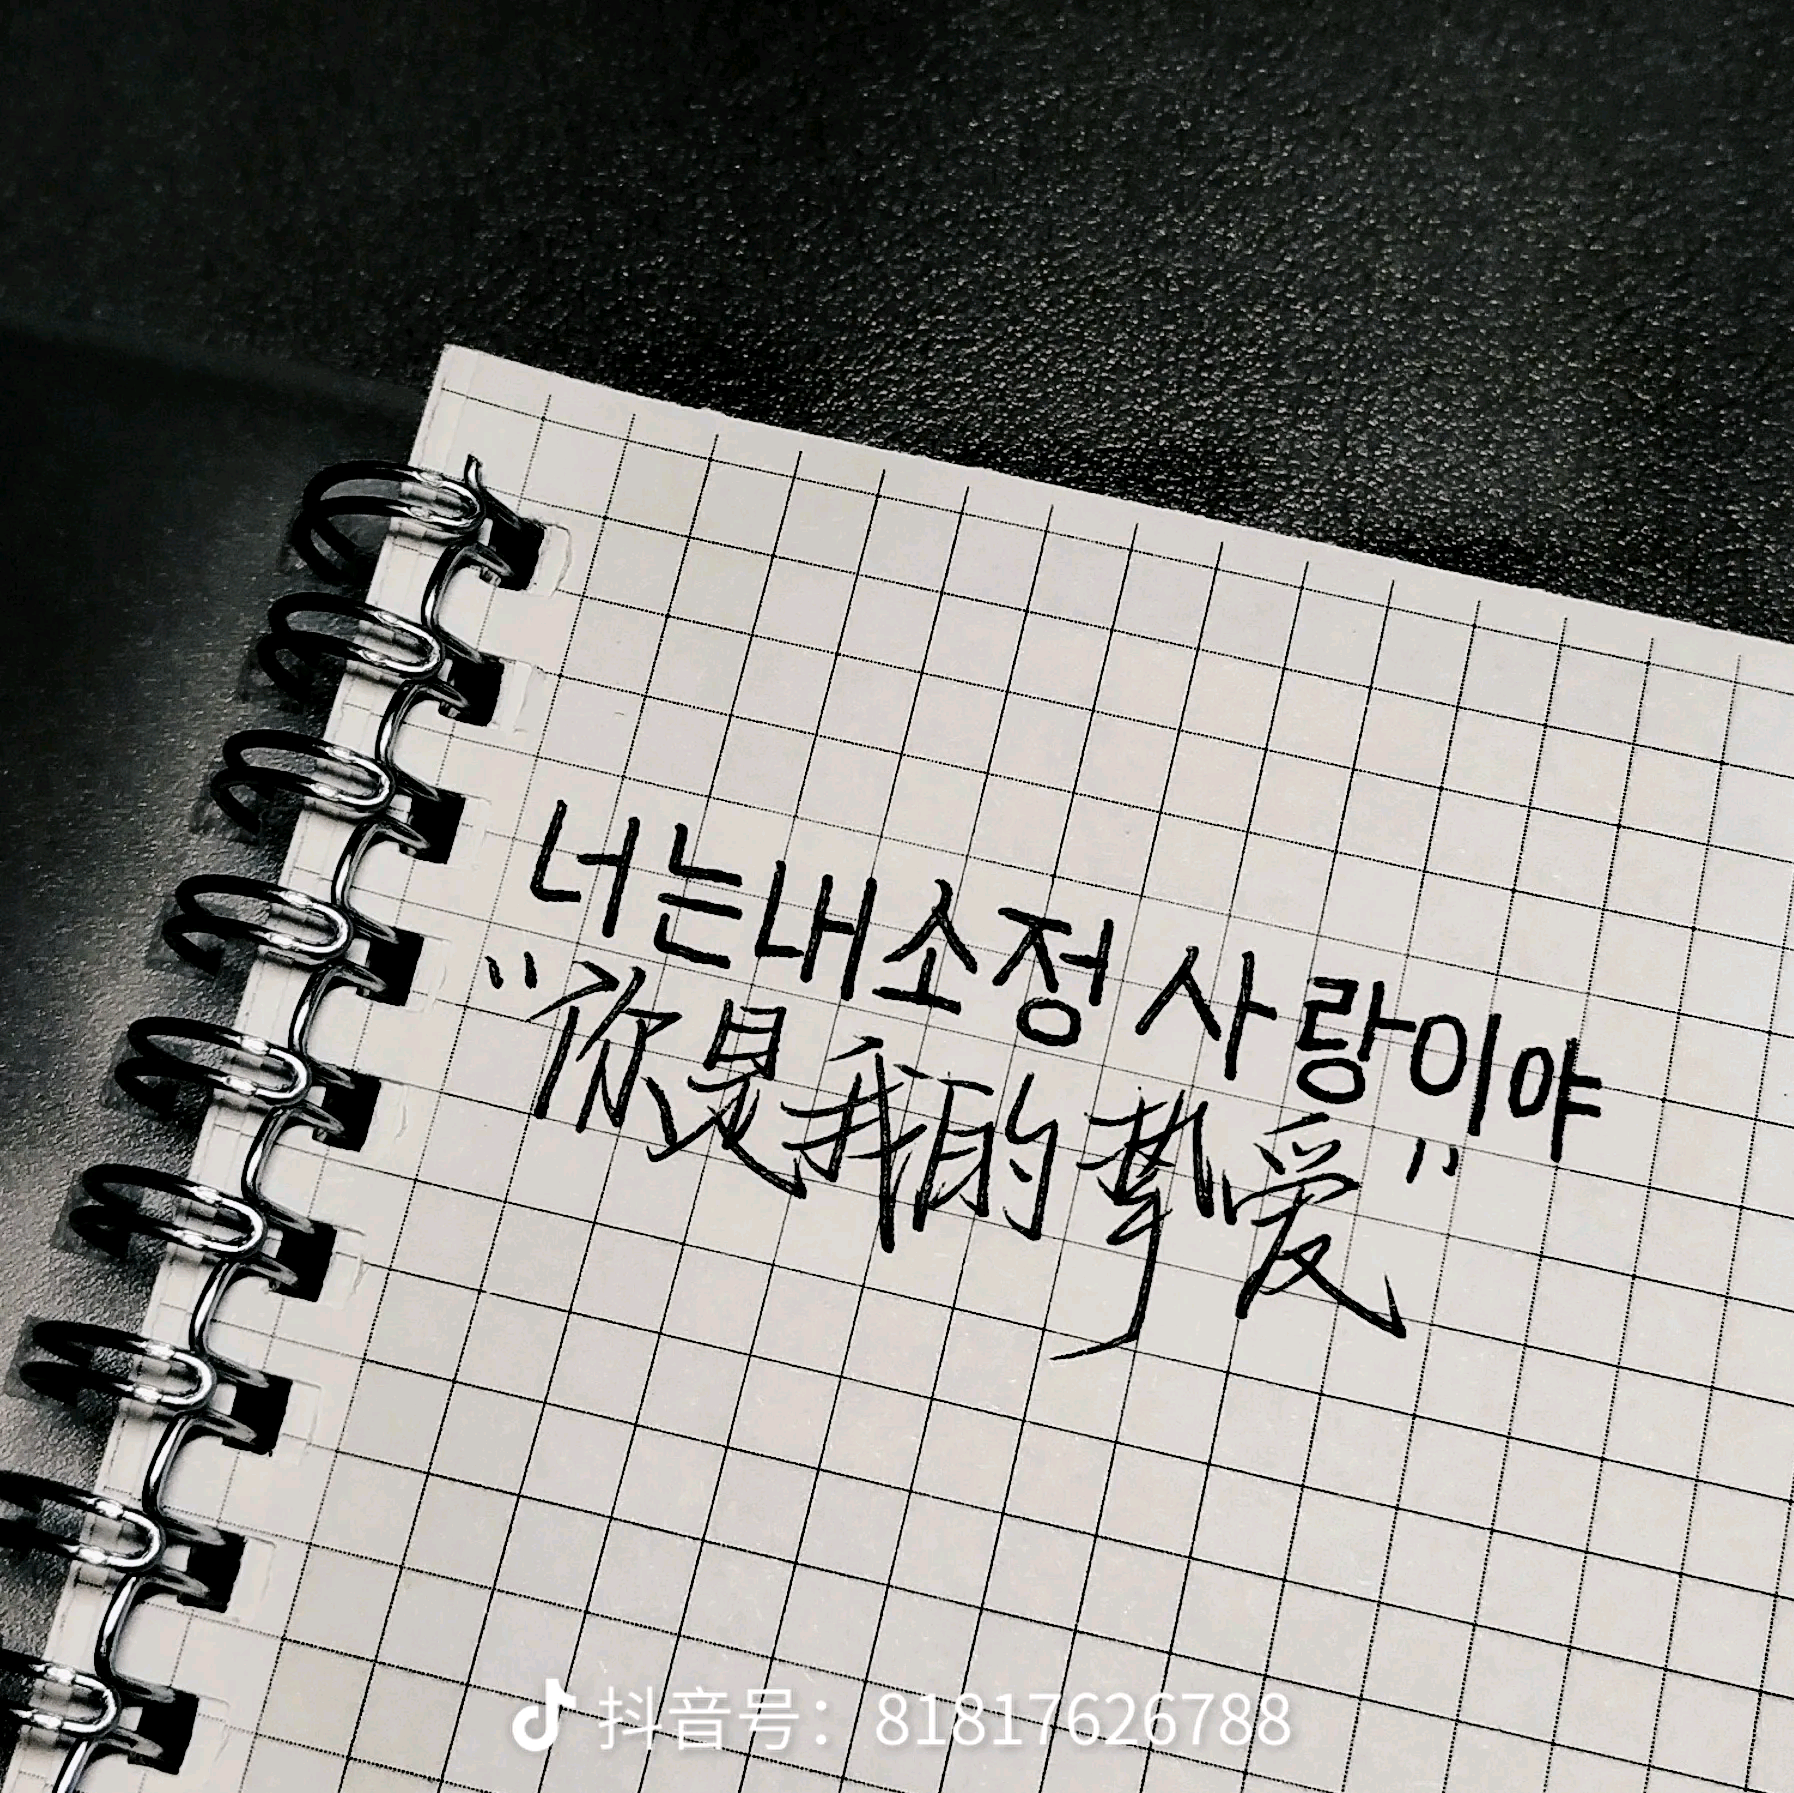 너는내소정 사랑이야
“你是我的挚爱”
抖音号：81817626788